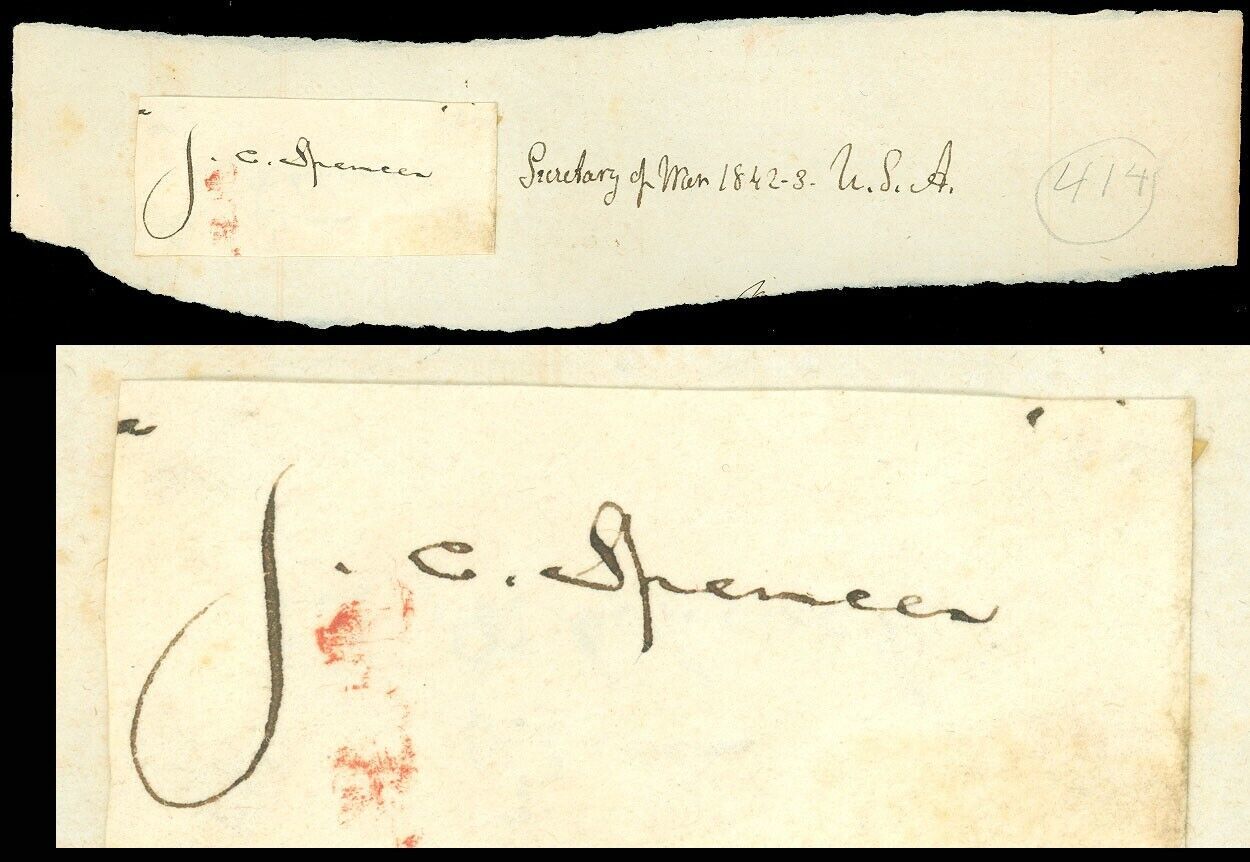 J. C. Spencer
Secretary of War 1842-3. U. S. A.
414
J. C. Spencer